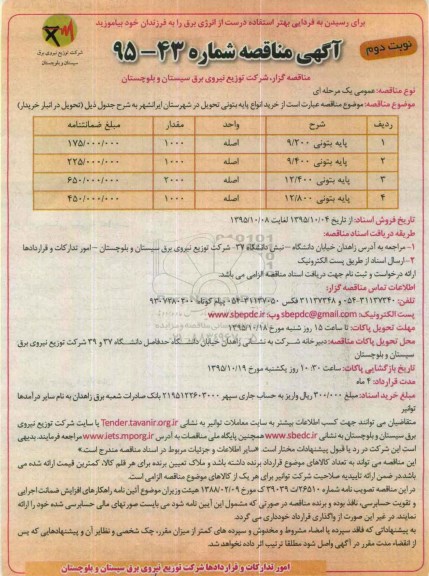 برای رسیدن به فردایی بهتر استفاده درست از انرژی برق را به فرزندان خود بیاموزید
نوبت دوم
آگهی مناقصه شماره ۴۳-۹۵
شرکت توزیع نیروی برق
سیستان و بلوچستان
مناقصه گزار، شرکت توزیع نیروی برق سیستان و بلوچستان
نوع مناقصه: عمومی یک مرحله ای
موضوع مناقصه: موضوع مناقصه عبارت است از خرید انواع پایه بتونی تحویل در شهرستان ایرانشهر به شرح جدول ذیل (تحویل در انبار خریدار)
ردیف شرح واحد مقدار مبلغ ضمانتنامه
۱ پایه بتونی ۹/۲۰۰ اصله ۱۰۰۰ ۱۷۵/۰۰۰/۰۰۰
۲ پایه بتونی ۹/۴۰۰ اصله ۱۰۰۰ ۲۲۵/۰۰۰/۰۰۰
۳ پایه بتونی ۱۲/۴۰۰ اصله ۲۰۰۰ ۶۵۰/۰۰۰/۰۰۰
۴ پایه بتونی ۱۲/۸۰۰ اصله ۱۰۰۰ ۴۵۰/۰۰۰/۰۰۰
تاریخ فروش اسناد: از تاریخ ۱۳۹۵/۱۰/۰۴ لغایت ۱۳۹۵/۱۰/۰۸
طریقه دریافت اسناد مناقصه:
۱- مراجعه به آدرس زاهدان خیابان دانشگاه - نبش دانشگاه ۳۷- شرکت توزیع نیروی برق سیستان و بلوچستان - امور تدارکات و قراردادها
۲- ارسال اسناد از طریق پست الکترونیک
ارائه درخواست و ثبت نام جهت دریافت اسناد مناقصه الزامی می باشد.
اطلاعات تماس مناقصه گزار:
تلفن: ۳۱۱۳۷۲۴۰-۰۵۴ و ۳۱۱۳۷۲۴۸ فکس ۳۱۱۳۷۰۵۰-۰۵۴ پیام کوتاه:
پست الکترونیک: sbepdc@gmail.com وب: www.sbepdc.ir
مهلت تحویل پاکات: تا ساعت ۱۵ روز شنبه مورخ ۱۳۹۵/۱۰/۱۸
محل تحویل پاکات مناقصه: دبیرخانه شرکت به نشانی زاهدان خیابان دانشگاه حدفاصل دانشگاه ۳۷ و ۳۹ شرکت توزیع نیروی برق
سیستان و بلوچستان
تاریخ بازگشایی پاکات: ساعت ۱۰:۳۰ روز یکشنبه مورخ ۱۳۹۵/۱۰/۱۹
مدت قرارداد: ۴ ماه
مبلغ خرید اسناد: مبلغ ۳۰۰/۰۰۰ ریال واریز به حساب جاری سپهر بانک صادرات شعبه برق زاهدان به نام سایر درآمدها
توانیر
متقاضیان می توانند جهت کسب اطلاعات بیشتر به سایت معاملات توانیر به نشانی Tender.tavanir.org.ir یا سایت شرکت توزیع نیروی
برق سیستان و بلوچستان به نشانی www.sbedc.ir و همچنین پایگاه ملی مناقصات به آدرس www.iets.mporg.ir مراجعه فرمایند. بدیهی
است این شرکت در رد یا قبول پیشنهادات مختار است. «سایر اطلاعات و جزئیات مربوط در اسناد مناقصه مندرج است»
این مناقصه می تواند به تعداد کالاهای موضوع قرارداد برنده داشته باشد و ملاک تعیین برنده برای هر قلم کالا، کمترین قیمت ارائه شده می
باشد. در ضمن ارائه تاییدیه صلاحیت شرکت توانیر برای هر یک از کالاهای موضوع مناقصه الزامی است.
در این مناقصه تصویب نامه شماره ۲۶۵۱۰/ت ۳۹۰۳۹ ک مورخ ۱۳۸۸/۰۲/۰۹ هیئت وزیران موضوع آئین نامه راهکارهای افزایش ضمانت اجرایی
و تقویت حسابرسی، نافذ بوده و برنده مناقصه در صورتی که مشمول این آیین نامه شود می بایست صورتهای مالی حسابرسی شده خود را ارائه
نمایند. در غیر این صورت از واگذاری قرارداد خودداری می گردد.
به پیشنهاداتی که فاقد سپرده یا امضاء مشروط و مخدوش و سپرده های کمتر از میزان مقرر، چک شخصی و نظایر آن و پیشنهادهایی که پس
از انقضاء مدت مقرر در آگهی واصل شود مطلقا ترتیب اثر داده نخواهد شد.
امور تدارکات و قراردادها شرکت توزیع نیروی برق سیستان و بلوچستان